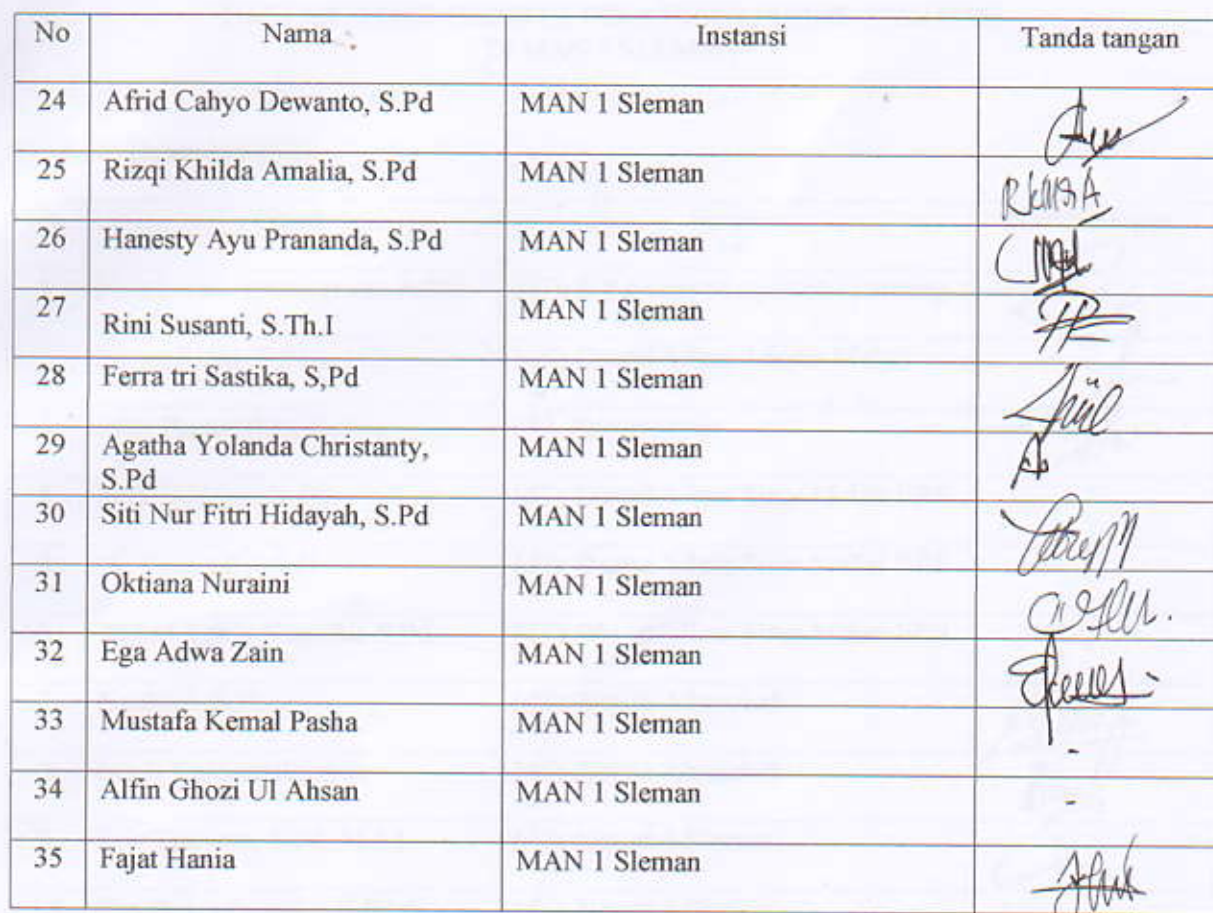 No Nama Instansi Tanda tangan
24 Afrid Cahyo Dewanto, S.Pd MAN 1 Sleman
25 Rizqi Khilda Amalia, S.Pd MAN 1 Sleman
26 Hanesty Ayu Prananda, S.Pd MAN 1 Sleman
27 Rini Susanti, S.Th.I MAN 1 Sleman
28 Ferra tri Sastika, S,Pd MAN 1 Sleman
29 Agatha Yolanda Christanty, MAN 1 Sleman
S.Pd
30 Siti Nur Fitri Hidayah, S.Pd MAN 1 Sleman
31 Oktiana Nuraini MAN 1 Sleman
32 Ega Adwa Zain MAN 1 Sleman
33 Mustafa Kemal Pasha MAN 1 Sleman -
34 Alfin Ghozi Ul Ahsan MAN 1 Sleman -
35 Fajat Hania MAN 1 Sleman